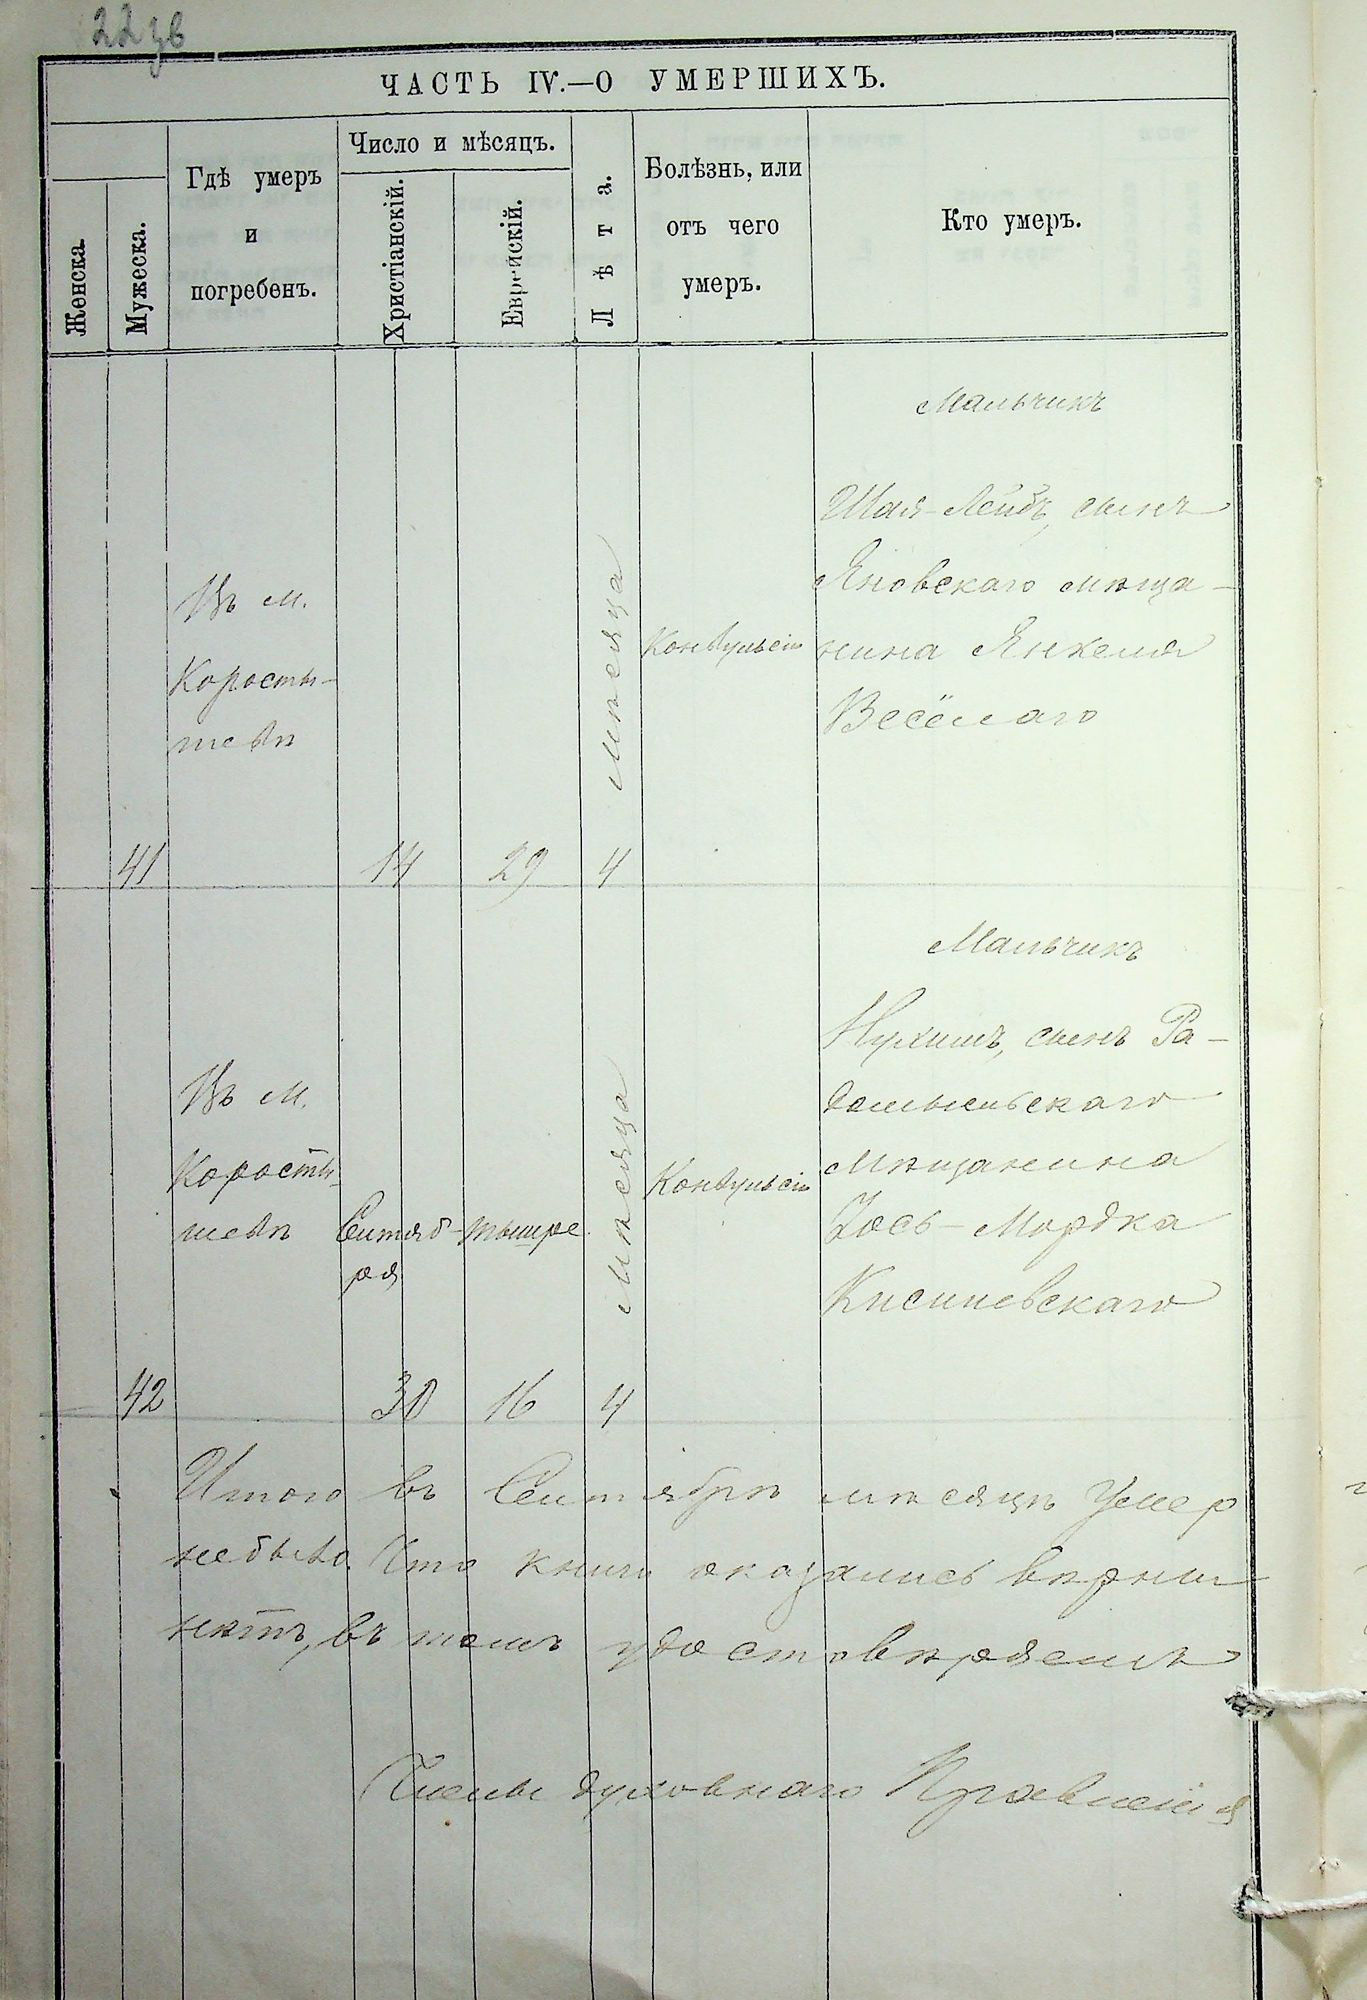 22зв
ЧАСТЬ IV.—О УМЕРШИХЪ.
Женска.
Мужеска.
Гдѣ умеръ
и
погребенъ.
Число и мѣсяцъ.
Христіанскій.
Еврейскій.
Лѣта.
Болѣзнь, или
отъ чего
умеръ.
Кто умеръ.
41
Въ м.
Коросты-
шевѣ
14
29
4
мѣсяца
Конвульсіи
Мальчикъ
Шая-Лейбъ, сынъ
Яновскаго мѣща-
нина Янкеля
Весёлаго
42
Въ м.
Коросты-
шевѣ
Сентяб-
ря
30
тышре
16
4
мѣсяца
Конвульсіи
Мальчикъ
Нухимъ, сынъ Ра-
домысльскаго
мѣщанина
Іось-Мордка
Кисиневскаго
Итого въ Сентябрѣ мѣсяцѣ Умер
небыло. Что книги оказались вѣрны
нетъ, въ томъ удостовѣряемъ
Члены духовнаго Правленія